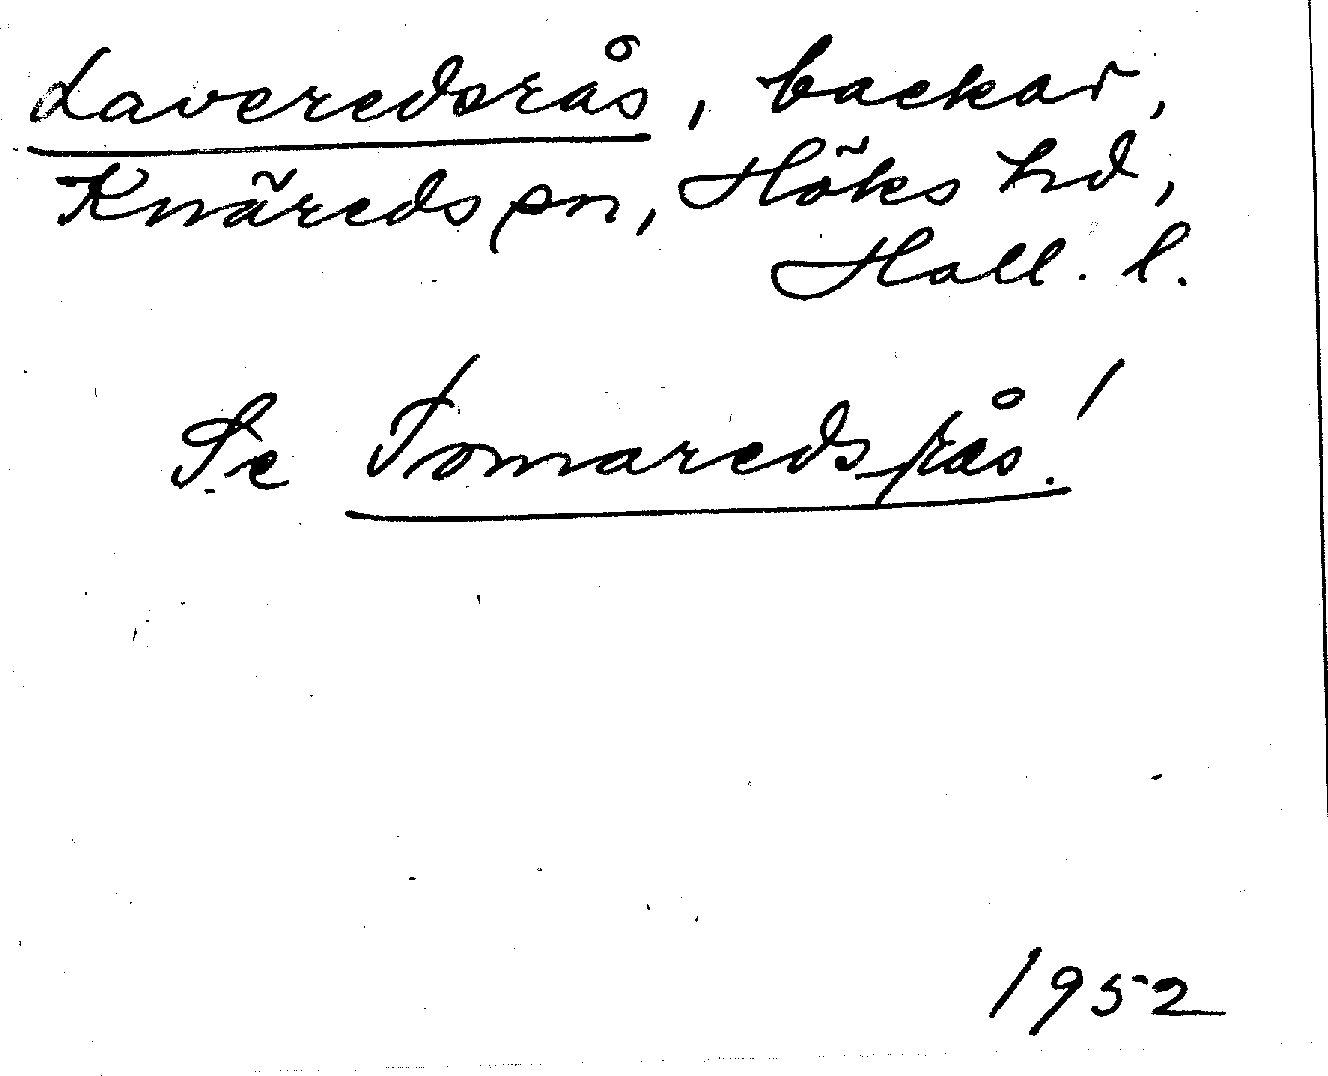 Laveredsrås, backar,
Knäreds sn, Höks hd,
Hall. l.
Se Tomaredsrås!
1952